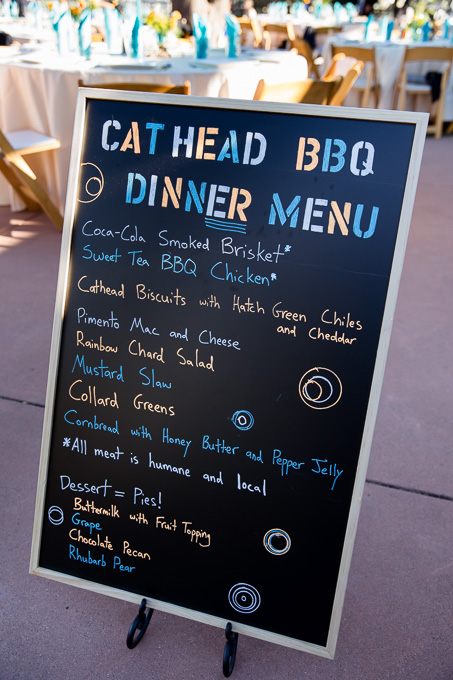 CAT HEAD BBQ
DINNER MENU
Coca-Cola Smoked Brisket*
Sweet Tea BBQ Chicken*
Cathead Biscuits with Hatch Green Chiles
and Cheddar
Pimento Mac and Cheese
Rainbow Chard Salad
Mustard Slaw
Collard Greens
Cornbread with Honey Butter and Pepper Jelly
*All meat is humane and local
Dessert = Pies!
Buttermilk with Fruit Topping
Grape
Chocolate Pecan
Rhubarb Pear